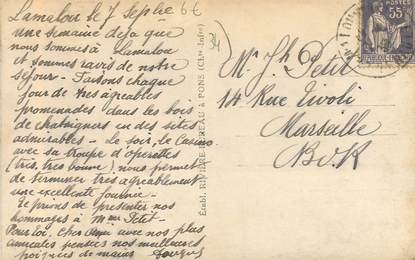 Lamalou le 7 Septbre
Une semaine déja que
nous sommes à Lamalou
et sommes ravis de notre
séjour - Faisons chaque
jour de très agréables
promenades dans les bois
de chataigners en des sites
admirables - Le soir, le Casino
avec sa troupe d'opérettes
(très, très bonne) nous permet
de terminer très agréablement
une excellente journée -
Te prions de présenter nos
hommages à Mme Petit -
Pour toi, cher ami avec nos plus
amicales pensées nos meilleures
poignées de mains
6€
34
Établ. RIVIÈRE-BUREAU à PONS (Chte-Infre)
POSTES
55c
Mr Jh Petit
14 Rue Tivoli
Marseille
B.d.R